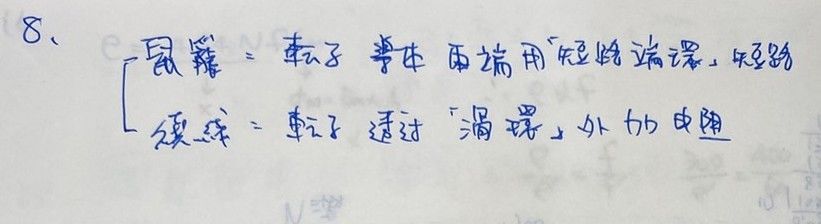 8、
鼠籠 = 轉子 導体 兩端用「短路端環」短路
繞線 = 轉子 透过「滑環」外加电阻